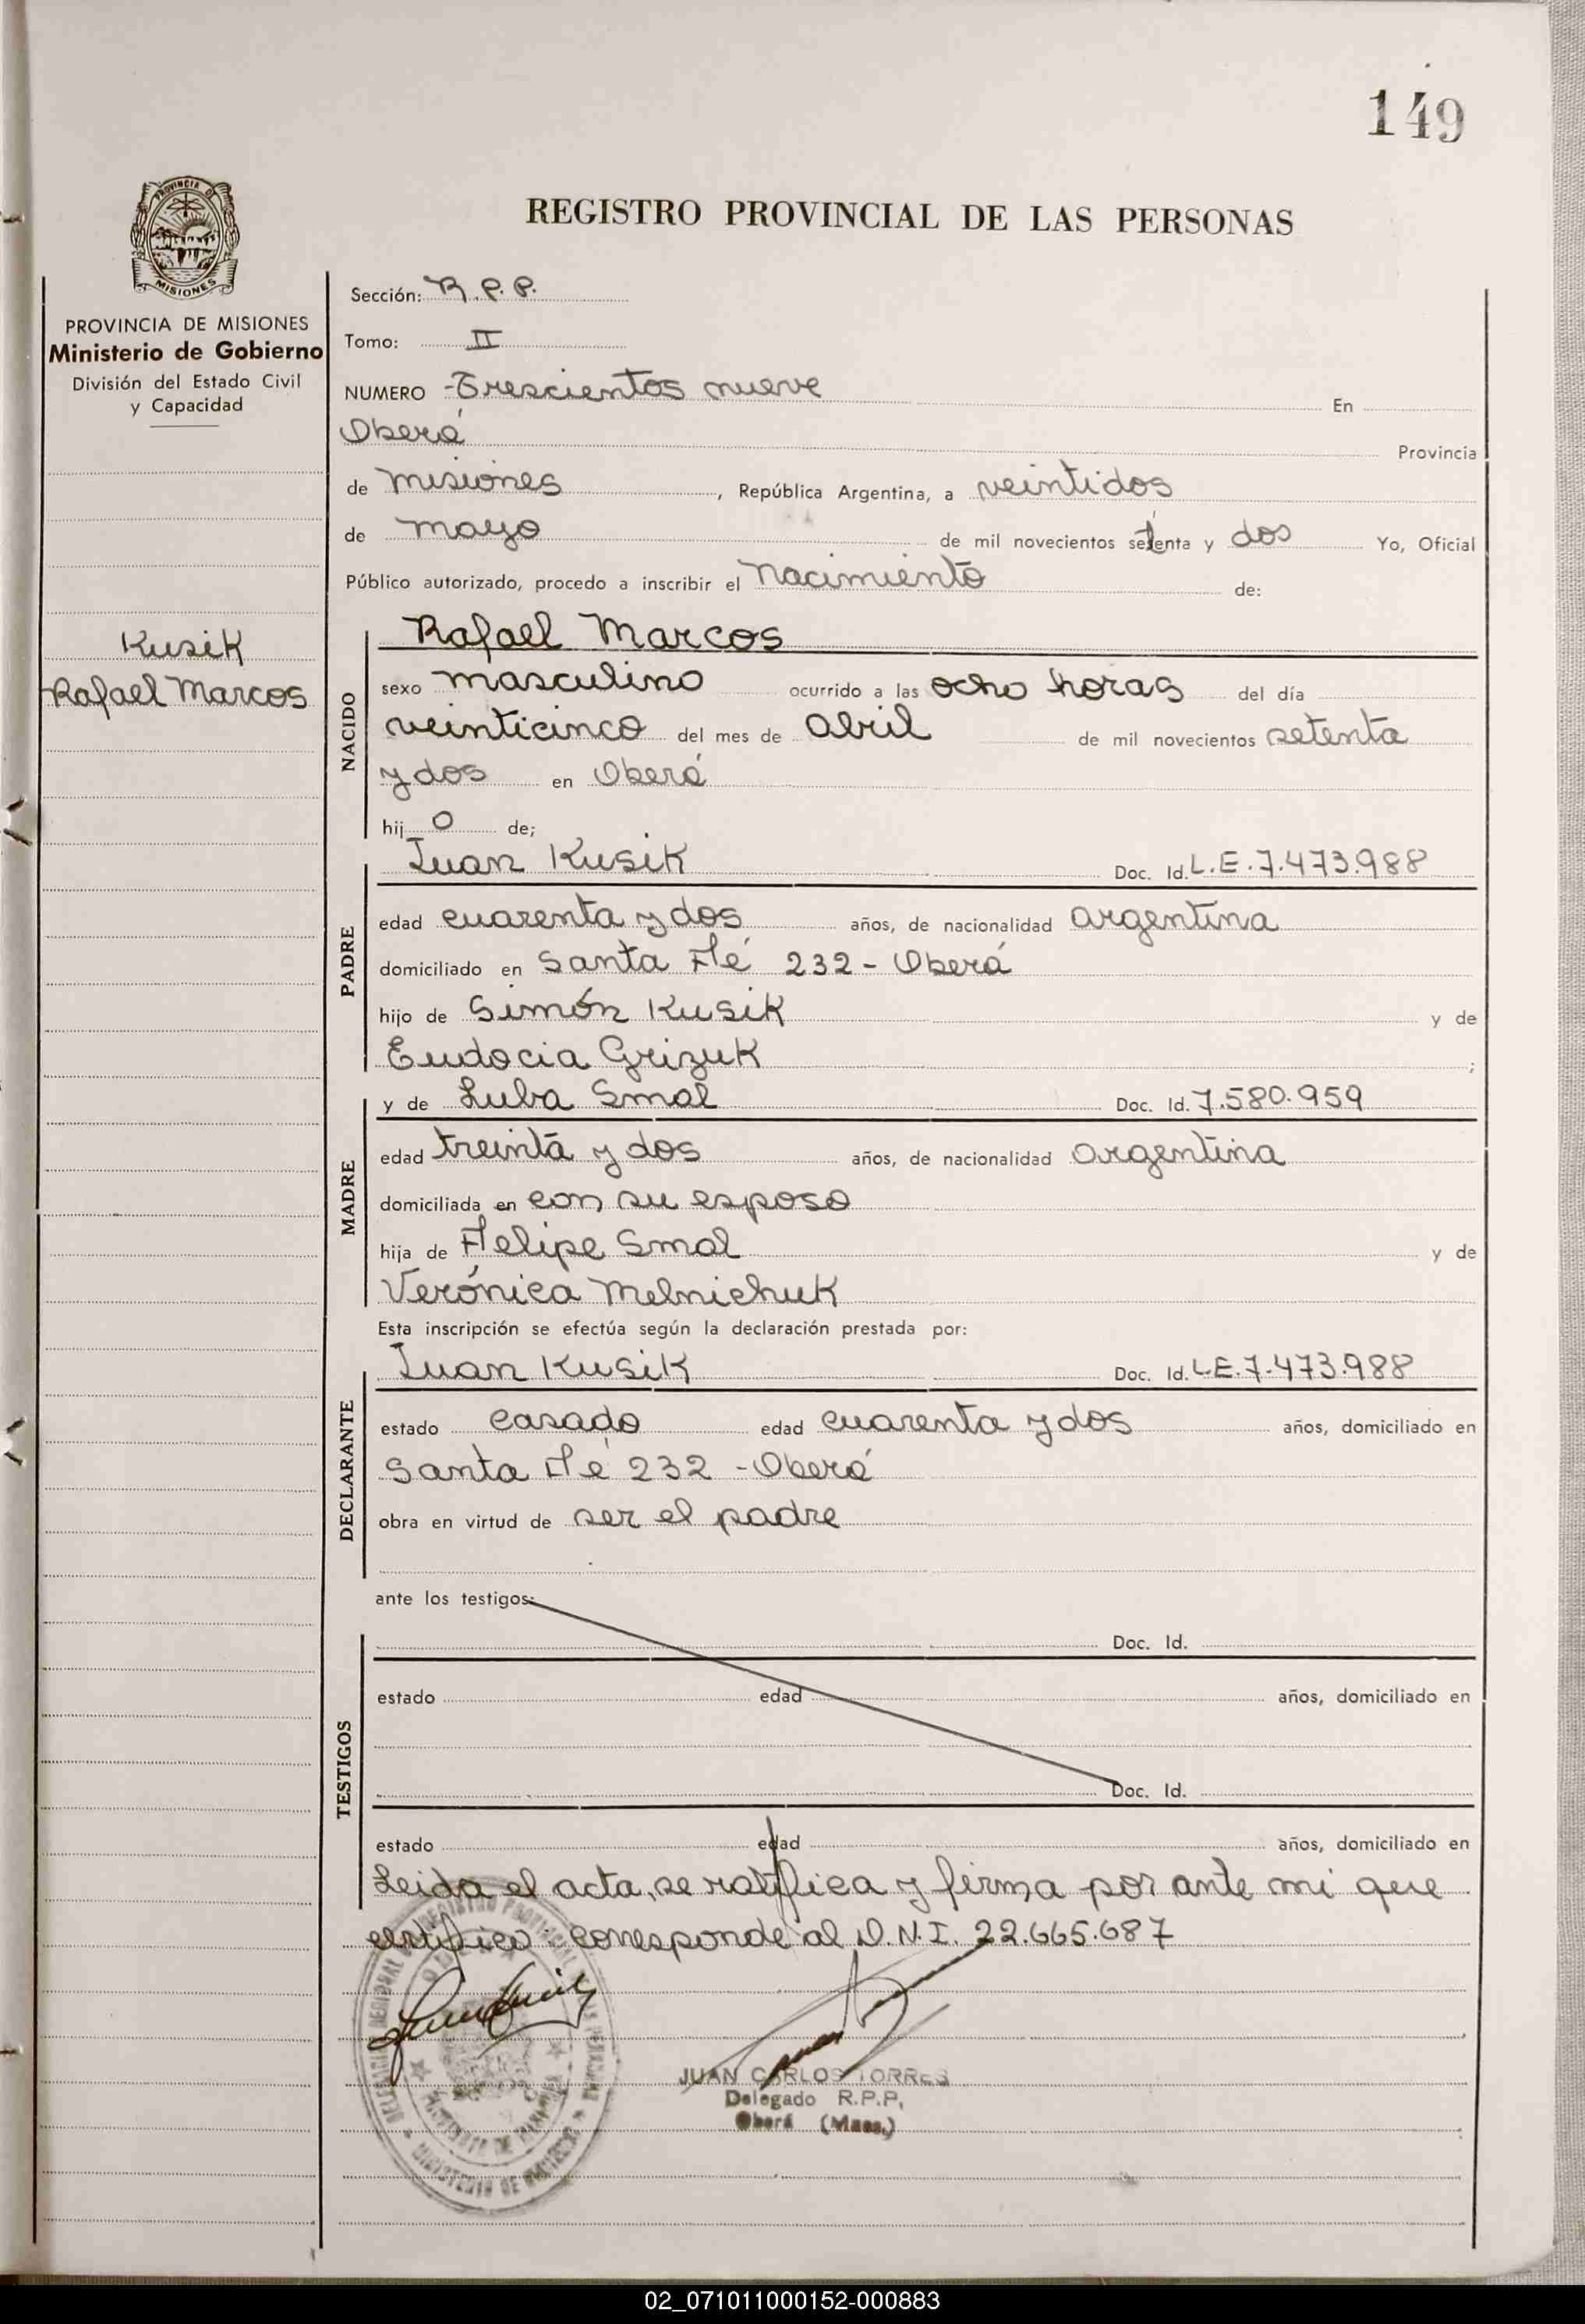 149
PROVINCIA DE MISIONES
REGISTRO PROVINCIAL DE LAS PERSONAS
PROVINCIA DE MISIONES
Ministerio de Gobierno
División del Estado Civil
y Capacidad
Kusik
Rafael Marcos
Sección: R.P.P.
Tomo: II
NUMERO -Trescientos nueve En
Oberá Provincia
de Misiones, República Argentina, a veintidos
de Mayo de mil novecientos setenta y dos Yo, Oficial
Público autorizado, procedo a inscribir el Nacimiento de:
NACIDO
Rafael Marcos
sexo masculino ocurrido a las ocho horas del día
veinticinco del mes de Abril de mil novecientos setenta
y dos en Oberá
hij o de;
PADRE
Juan Kusik Doc. Id. L.E.7.473.988
edad cuarenta y dos años, de nacionalidad argentina
domiciliado en Santa Fé 232 - Oberá
hijo de Simón Kusik y de
Eudocia Grizuk ;
MADRE
y de Luba Smal Doc. Id. 7.580.959
edad treinta y dos años, de nacionalidad argentina
domiciliada en con su esposo
hija de Felipe Smal y de
Verónica Melnichuk
Esta inscripción se efectúa según la declaración prestada por:
DECLARANTE
Juan Kusik Doc. Id. L.E.7.473.988
estado casado edad cuarenta y dos años, domiciliado en
Santa Fé 232 - Oberá
obra en virtud de ser el padre
ante los testigos:
TESTIGOS
Doc. Id.
estado edad años, domiciliado en
Doc. Id.
estado edad años, domiciliado en
Leida el acta, se ratifica y firma por ante mi que
certifico: corresponde al D.N.I. 22.665.687
JUAN CARLOS TORRES
Delegado R.P.P.
Oberá (Mnes.)
MINISTERIO DE GOBIERNO
02_071011000152-000883